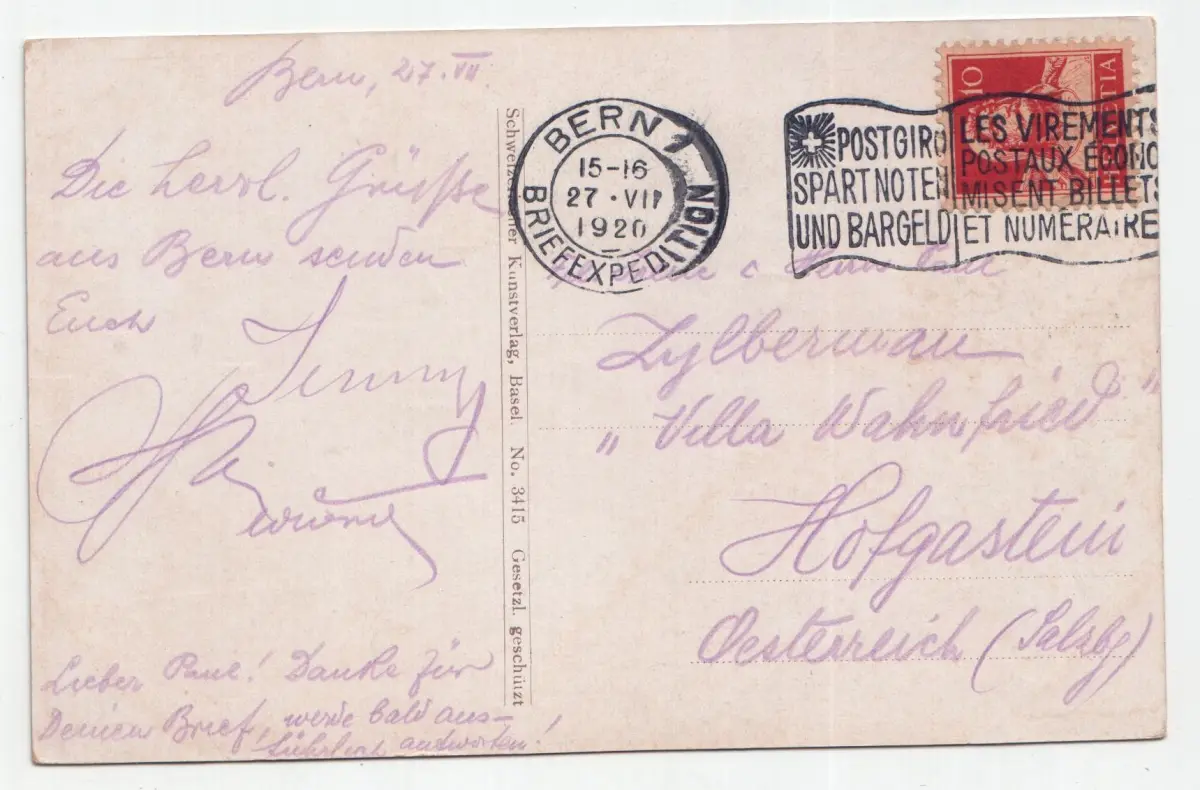 Bern, 27. VII
Die herzl. Grüsse
aus Bern senden
Euch
Lieber Paul! Danke für
Deinen Brief, werde bald aus-
führlich antworten!
Schweizerischer Kunstverlag, Basel. No. 3415 Gesetzl. geschützt
BERN 1
15-16
27 · VII
1920
BRIEFEXPEDITION
POSTGIRO
SPART NOTEN
UND BARGELD
LES VIREMENTS
POSTAUX ÉCONO
MISENT BILLETS
ET NUMÉRAIRE
10
HELVETIA
Herrn Paul
Zylberman
„Villa Wahnfried"
Hofgastein
Oesterreich (Salzbg)